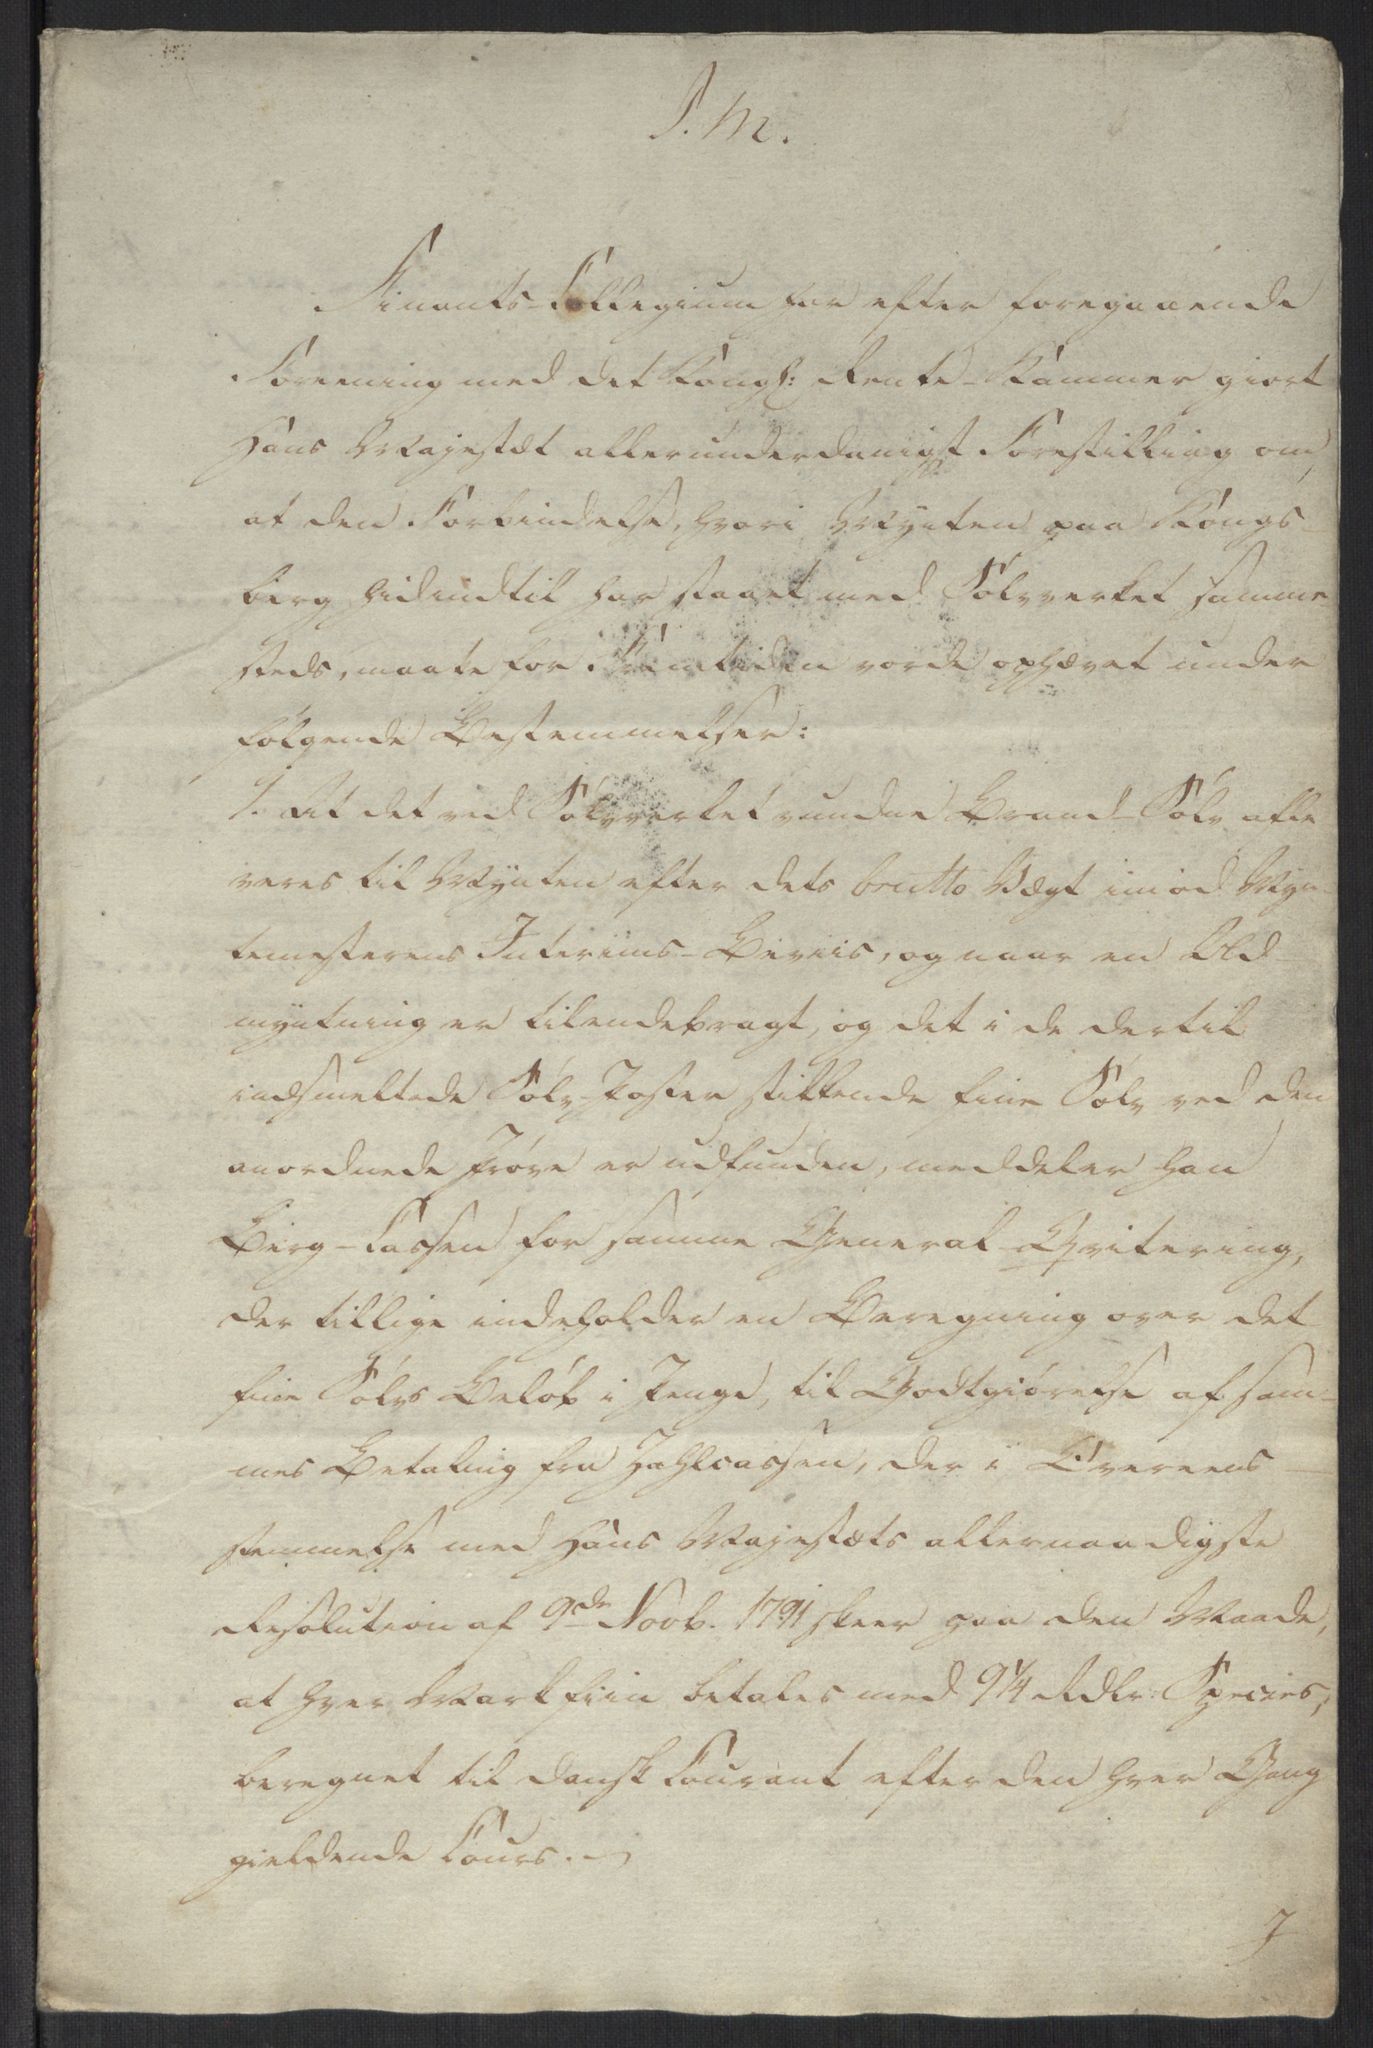 P. M.
Finants-Collegium har efter foregaaende
Foreening med det Kongl: Rente-Kammer giort
Hans Majestæt allerunderdanigst Forestilling om,
at den Forbindelse, hvori Mynten paa Kongs-
berg hidindtil har staaet med Sølvverket samme-
steds, maatte for Fremtiden vorde ophævet under
følgende Bestemmelser:
1. At det ved Sølvverket vundne Brand-Sølv afle-
veres til Mynten efter dets brutto Vægt imod Myn-
temesterens Interims-Beviis, og naar en Ud-
myntning er tilendebragt, og det i de dertil
indsmeltede Sølv-Poster stikkende fine Sølv ved den
anordnede Prøve er udfunden, meddeler han
Berg-Cassen for samme General-Qvitering,
der tillige indeholder en Beregning over det
fine Sølvs Beløb i Penge, til Godtgiørelse af sam-
mes Betaling fra Zahlcassen, der i Overeens-
stemmelse med Hans Majestæts allernaadigste
Resolution af 9de Novb. 1791 skeer paa den Maade,
at hver Mark fiin betales med 9¼ Rdlr: Species,
beregnet til dansk Courant efter den hver Gang
gieldende Cours.